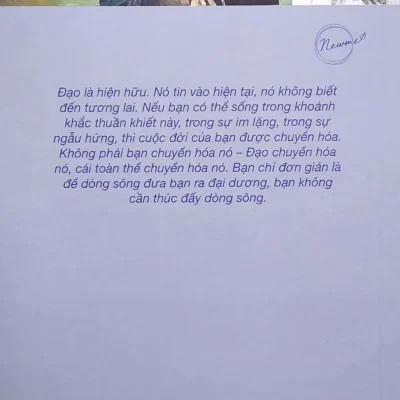 Newme
Đạo là hiện hữu. Nó tin vào hiện tại, nó không biết
đến tương lai. Nếu bạn có thể sống trong khoảnh
khắc thuần khiết này, trong sự im lặng, trong sự
ngẫu hứng, thì cuộc đời của bạn được chuyển hóa.
Không phải bạn chuyển hóa nó – Đạo chuyển hóa
nó, cái toàn thể chuyển hóa nó. Bạn chỉ đơn giản là
để dòng sông đưa bạn ra đại dương, bạn không
cần thúc đẩy dòng sông.